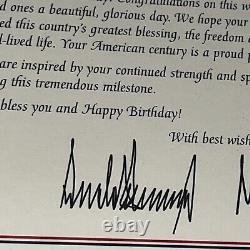 Congratulations on this w
d ones a beautiful, glorious day. We hope your
ed this country's greatest blessing, the freedom
l-lived life. Your American century is a proud
are inspired by your continued strength and sp
ng this tremendous milestone.
bless you and Happy Birthday!
With best wish